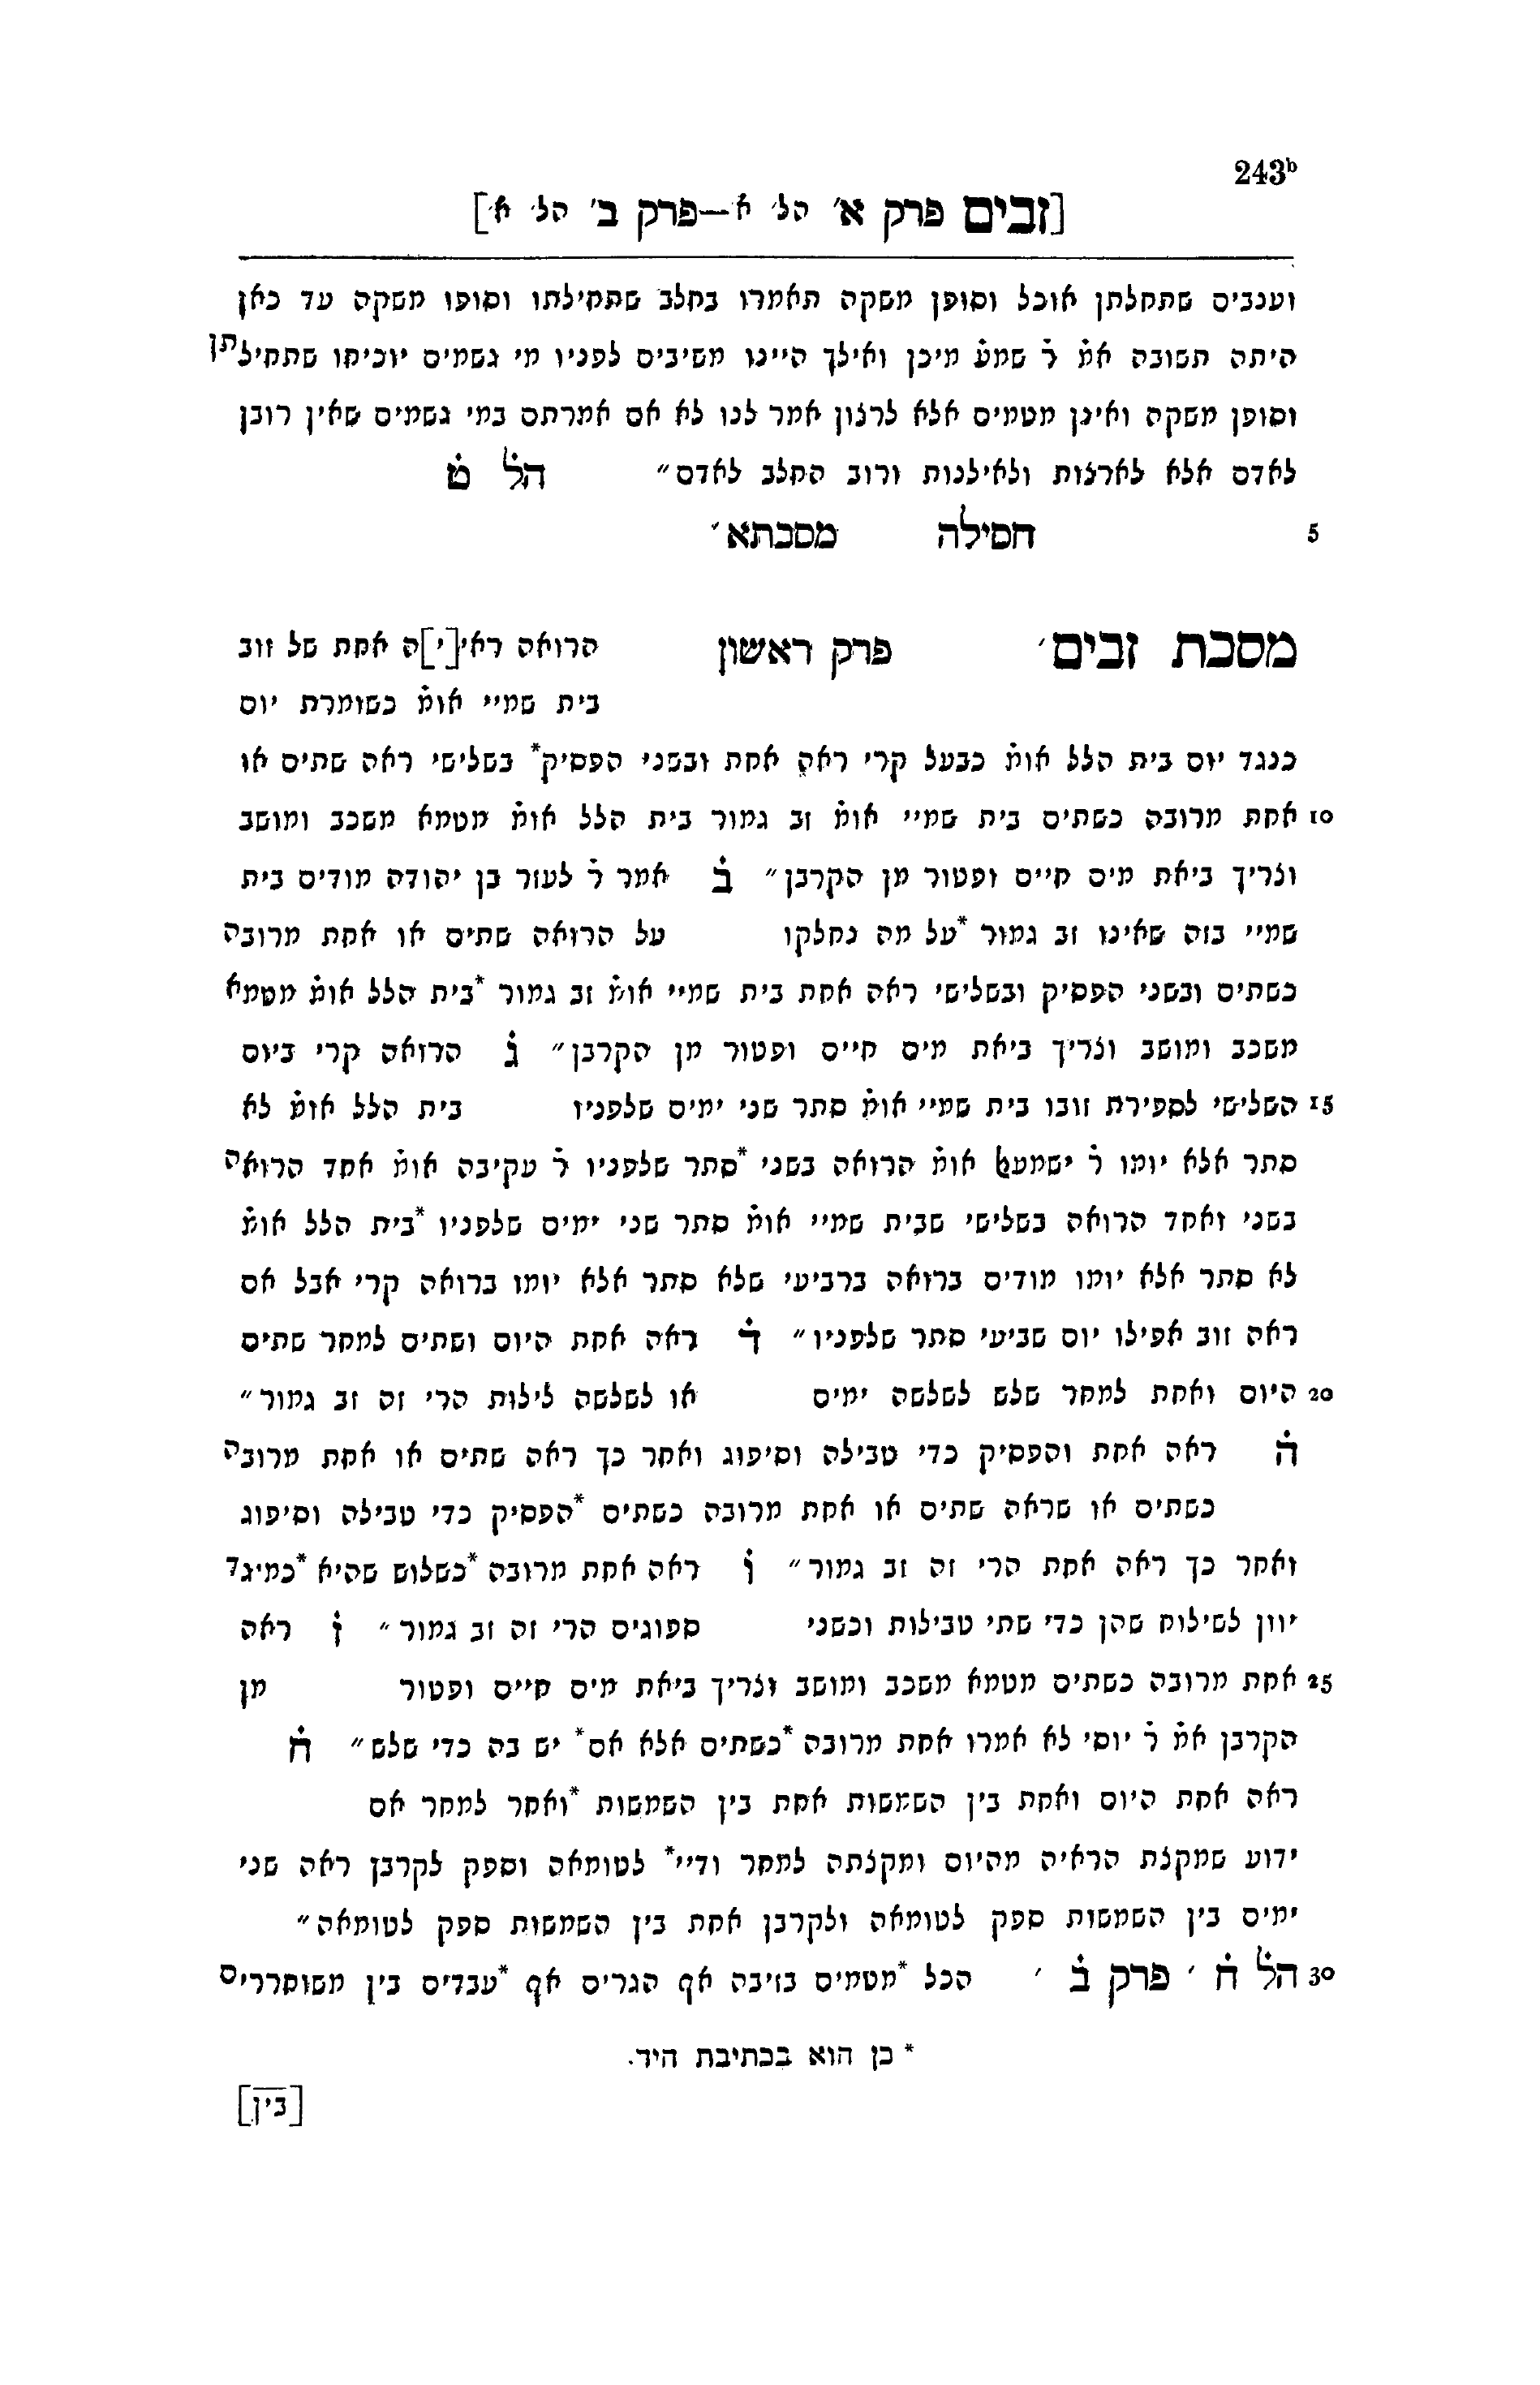 243ᵇ
[זבים פרק א׳ הל׳ א׳—פרק ב׳ הל׳ א׳]
וענבים שתחלתן אוכל וסופן משקה תאמרו בחלב שתחילתו וסופו משקה עד כאן
היתה תשובה אמ̇ ר̇ שמע̇ מיכן ואילך היינו משיבים לפניו מי גשמים יוכיחו שתחילתן
וסופן משקה ואינן מטמים אלא לרצון אמר לנו לא אם אמרתם במי גשמים שאין רובן
לאדם אלא לארצות ולאילנות ורוב החלב לאדם״ הל̇ ט̇
5 חסילה מסכתא׳
מסכת זבים׳ פרק ראשון הרואה ראי[י]ה אחת של זוב
בית שמיי אומ̇ כשומרת יום
כנגד יום בית הלל אומ̇ כבעל קרי ראה אחת ובשני הפסיק* בשלישי ראה שתים או
10 אחת מרובה כשתים בית שמיי אומ̇ זב גמור בית הלל אומ̇ מטמא משכב ומושב
וצריך ביאת מים חיים ופטור מן הקרבן״ ב̇ אמר ר̇ לעזר בן יהודה מודים בית
שמיי בזה שאינו זב גמור *על מה נחלקו על הרואה שתים או אחת מרובה
כשתים ובשני הפסיק ובשלישי ראה אחת בית שמיי אומ̇ זב גמור *בית הלל אומ̇ מטמא
משכב ומושב וצריך ביאת מים חיים ופטור מן הקרבן״ ג̇ הרואה קרי ביום
15 השלישי לספירת זובו בית שמיי אומ̇ סתר שני ימים שלפניו בית הלל אומ̇ לא
סתר אלא יומו ר̇ ישמעל אומ̇ הרואה בשני *סתר שלפניו ר̇ עקיבה אומ̇ אחד הרואה
בשני ואחד הרואה בשלישי שבית שמיי אומ̇ סתר שני ימים שלפניו *בית הלל אומ̇
לא סתר אלא יומו מודים ברואה ברביעי שלא סתר אלא יומו ברואה קרי אבל אם
ראה זוב אפילו יום שביעי סתר שלפניו״ ד̇ ראה אחת היום ושתים למחר שתים
20 היום ואחת למחר שלש לשלשה ימים או לשלשה לילות הרי זה זב גמור״
ה̇ ראה אחת והפסיק כדי טבילה וסיפוג ואחר כך ראה שתים או אחת מרובה
כשתים או שראה שתים או אחת מרובה כשתים *הפסיק כדי טבילה וסיפוג
ואחר כך ראה אחת הרי זה זב גמור״ ו̇ ראה אחת מרובה *כשלוש שהיא *כמיגד
יוון לשילוח שהן כדי שתי טבילות וכשני ספוגים הרי זה זב גמור״ ז̇ ראה
25 אחת מרובה כשתים מטמא משכב ומושב וצריך ביאת מים חיים ופטור מן
הקרבן אמ̇ ר̇ יוסי לא אמרו אחת מרובה *כשתים אלא אם* יש בה כדי שלש״ ח̇
ראה אחת היום ואחת בין השמשות אחת בין השמשות *ואחר למחר אם
ידוע שמקצת הראיה מהיום ומקצתה למחר ודיי* לטומאה וספק לקרבן ראה שני
ימים בין השמשות ספק לטומאה ולקרבן אחת בין השמשות ספק לטומאה״
30 הל̇ ח̇ ׳ פרק ב̇ ׳ הכל *מטמים בזיבה אף הגרים אף *עבדים בין משוחררים
* כן הוא בכתיבת היד.
[בין]